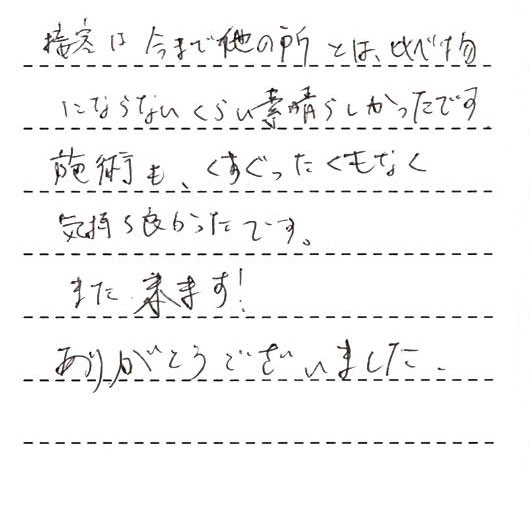 接客は今まで他の所とは、比べ物
にならないくらい素晴らしかったです
施術も、くすぐったくもなく
気持ち良かったです。
また来ます!
ありがとうございました.